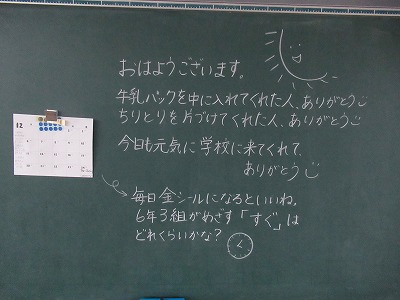 おはようございます。
牛乳パックを中に入れてくれた人、ありがとう
ちりとりを片づけてくれた人、ありがとう
今日も元気に学校に来てくれて、
ありがとう
毎日金シールになるといいね。
6年3組がめざす「すぐ」は
どれくらいかな?
12